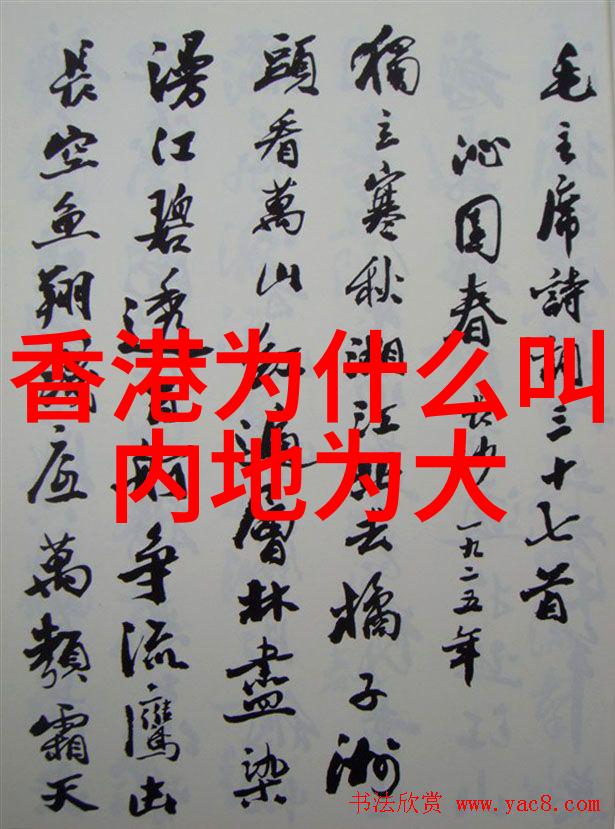 香港为什么叫
内地为大
毛主席詩詞三十七首
沁园春 长沙 一九二五年
獨立寒秋湘江北去橘子洲
頭看萬山红遍層林盡染
漫江碧透百舸争流鷹击
長空魚翔淺底萬類霜天
书法欣赏 www.yac8.com